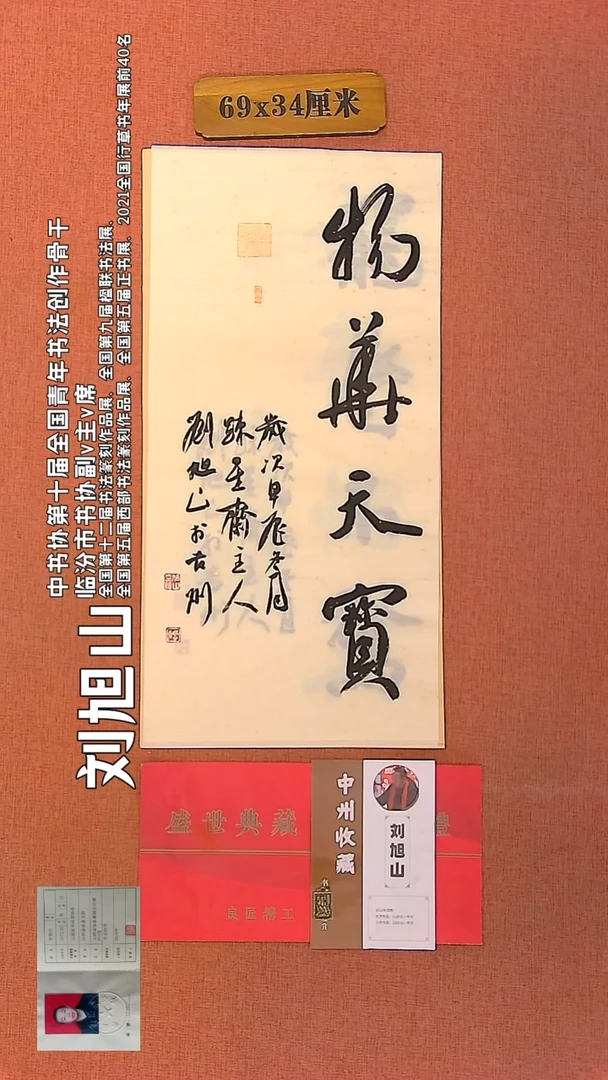 69x34厘米
物華天寶
歲次甲辰冬月
踈至齋主人
劉旭山於古州
刘旭山
中书协第十届全国青年书法创作骨干
临汾市书协副v主v席
全国第十二届书法篆刻作品展、全国第九届楹联书法展、
全国第五届西部书法篆刻作品展、全国第五届正书展、2021全国行草书年展前40名
盛世典藏
良匠誉工
中州收藏
刘旭山